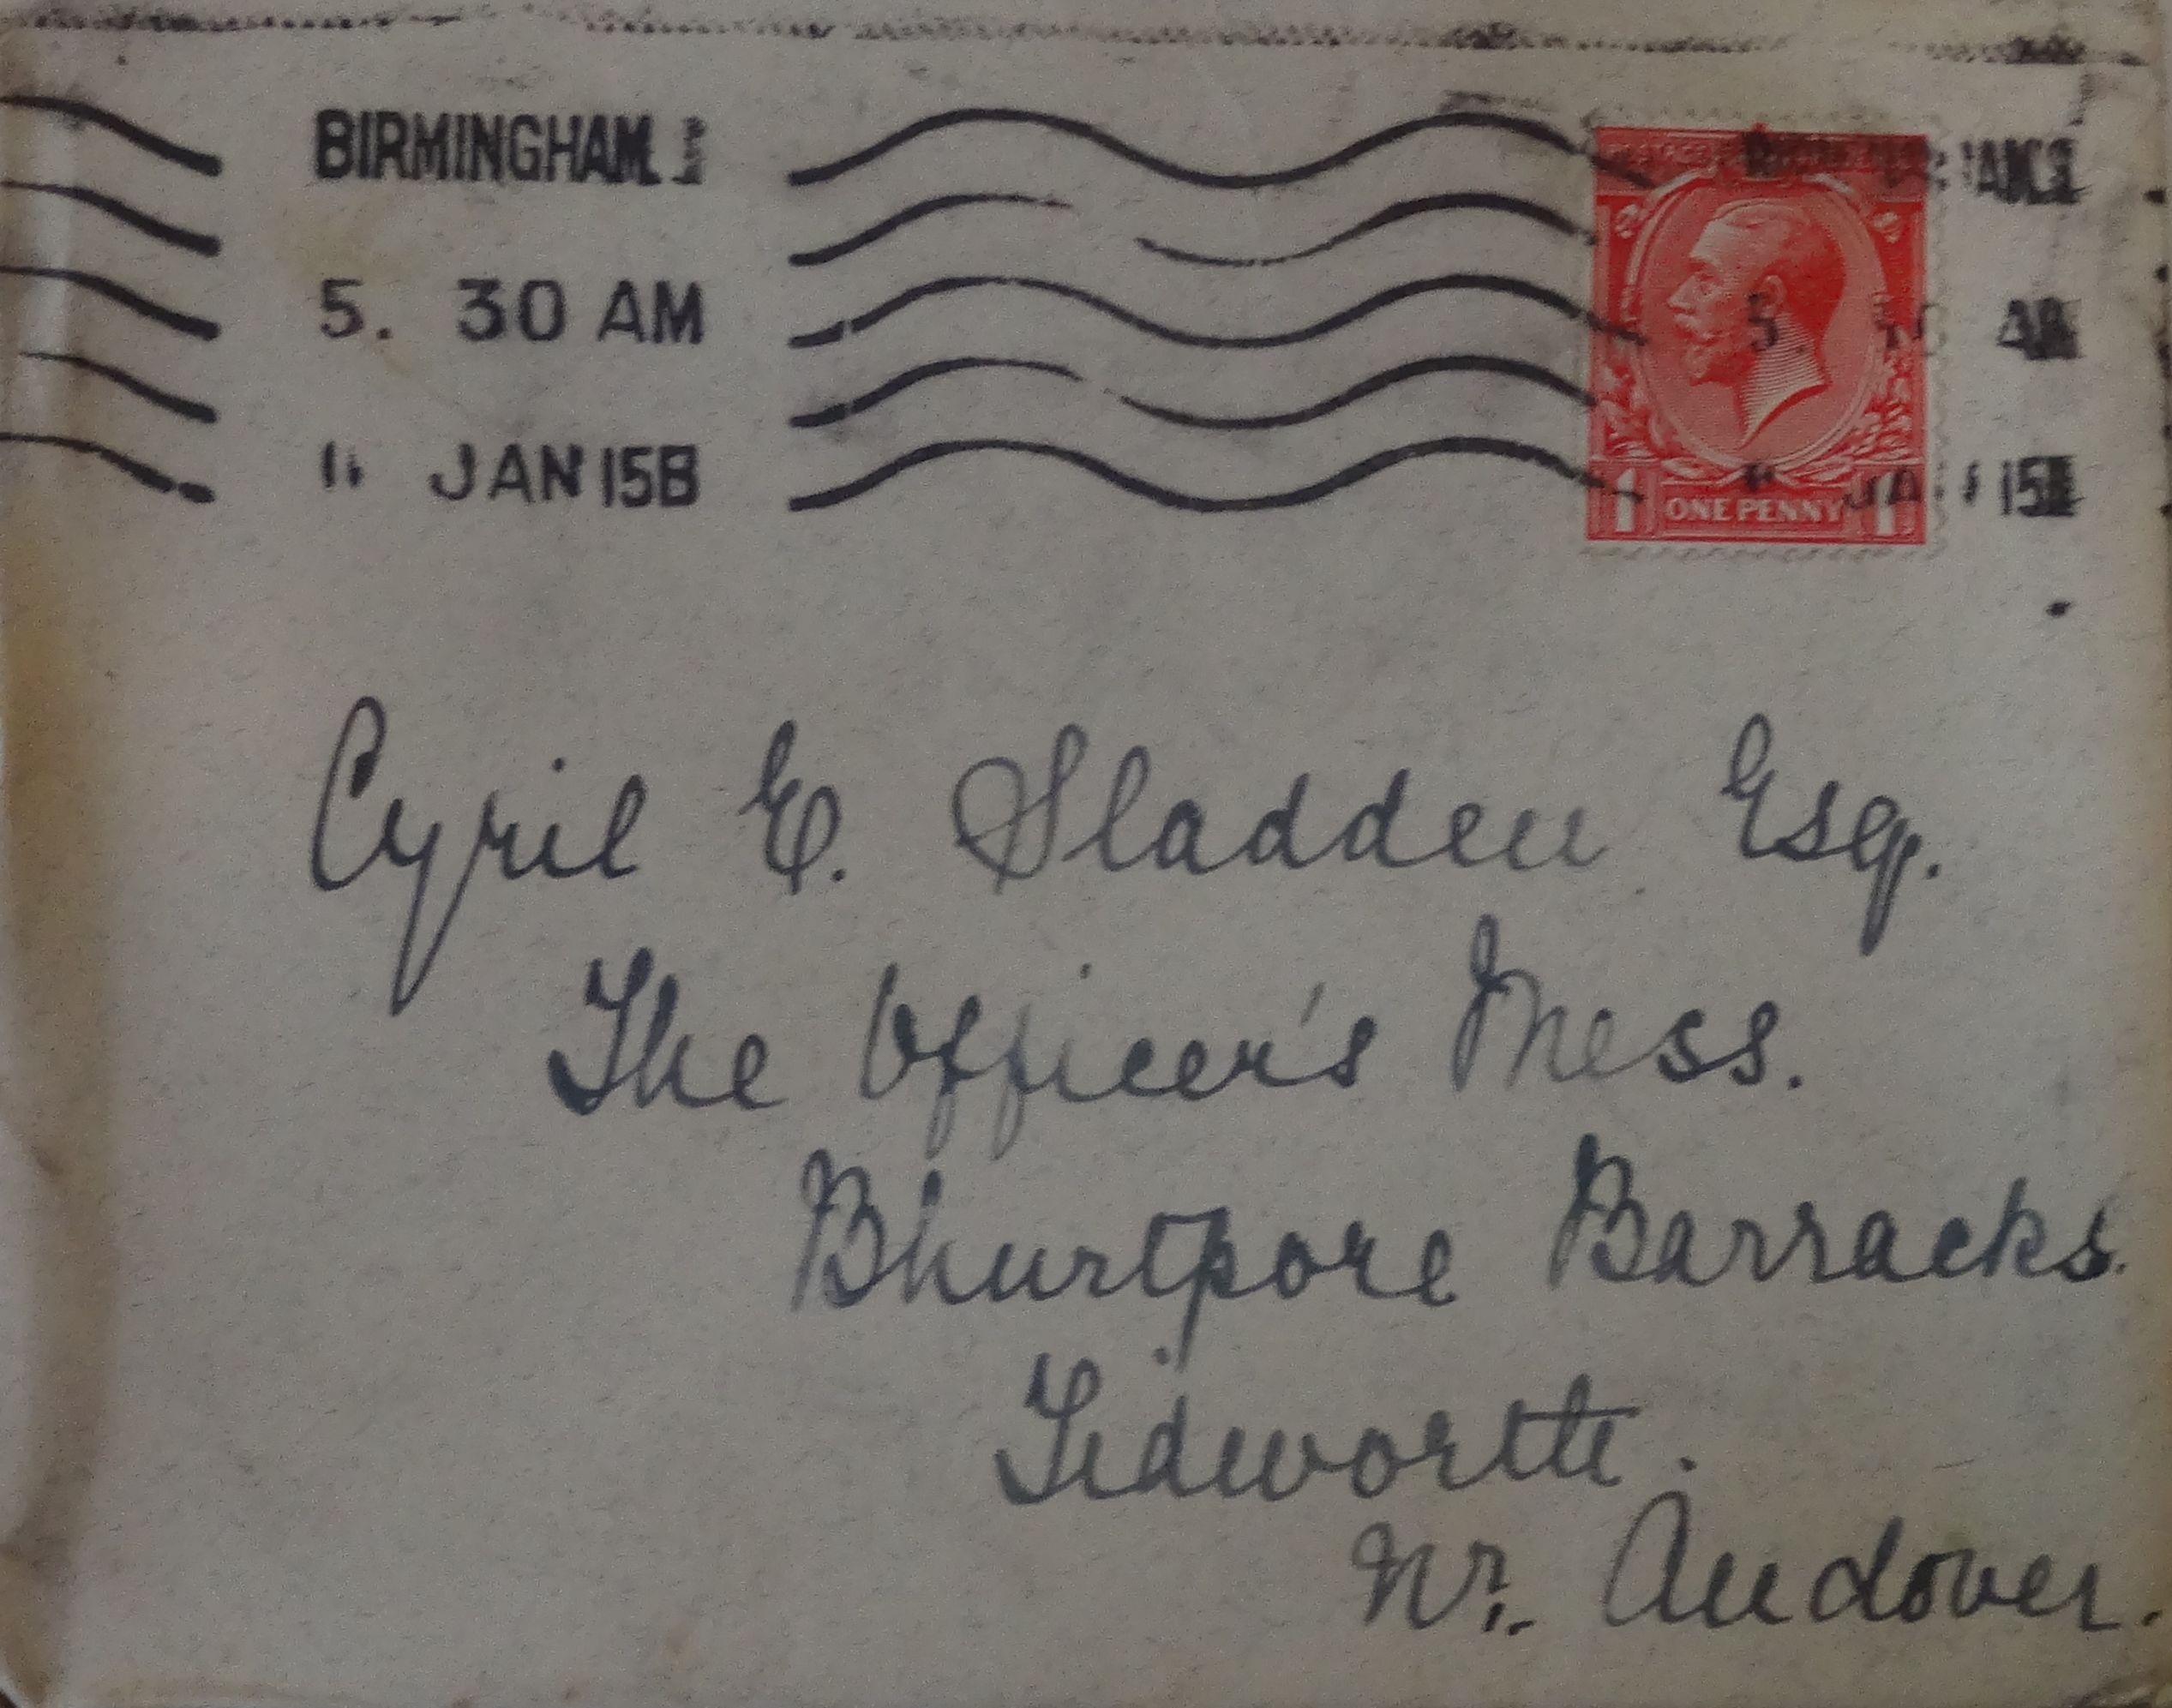 BIRMINGHAM
5. 30 AM
JAN 15B
ONE PENNY
1 1
Cyril E. Sladden Esq.
The Officer's Mess.
Bhurtpore Barracks.
Tidworth.
Nr. Andover.